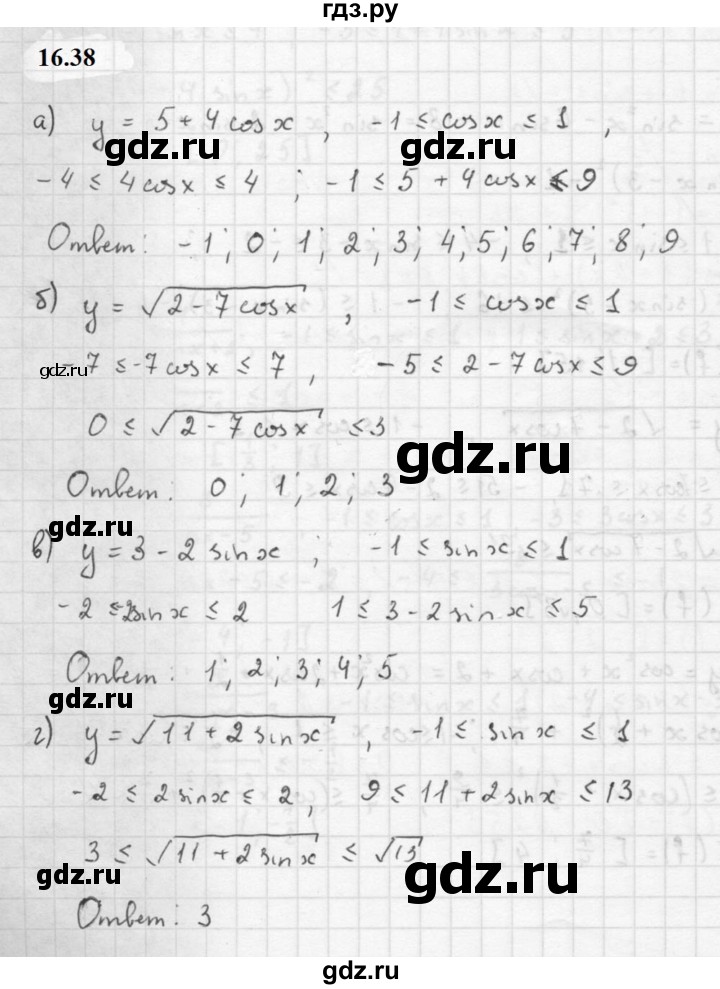 гдз.ру
16.38
а) y = 5 + 4 cos x , -1 ≤ cos x ≤ 1 ,
gdz.ru gdz.ru
-4 ≤ 4 cos x ≤ 4 ; -1 ≤ 5 + 4 cos x ≤ 9
Ответ: -1; 0; 1; 2; 3; 4; 5; 6; 7; 8; 9
б) y = √(2 - 7 cos x) , -1 ≤ cos x ≤ 1
gdz.ru
-7 ≤ -7 cos x ≤ 7 , -5 ≤ 2 - 7 cos x ≤ 9
0 ≤ √(2 - 7 cos x) ≤ 3
gdz.ru
Ответ: 0; 1; 2; 3
gdz.ru
в) y = 3 - 2 sin x ; -1 ≤ sin x ≤ 1
-2 ≤ -2 sin x ≤ 2 1 ≤ 3 - 2 sin x ≤ 5
Ответ: 1; 2; 3; 4; 5
gdz.ru
г) y = √(11 + 2 sin x) , -1 ≤ sin x ≤ 1
-2 ≤ 2 sin x ≤ 2 , 9 ≤ 11 + 2 sin x ≤ 13
3 ≤ √(11 + 2 sin x) ≤ √13
gdz.ru
Ответ: 3
gdz.ru